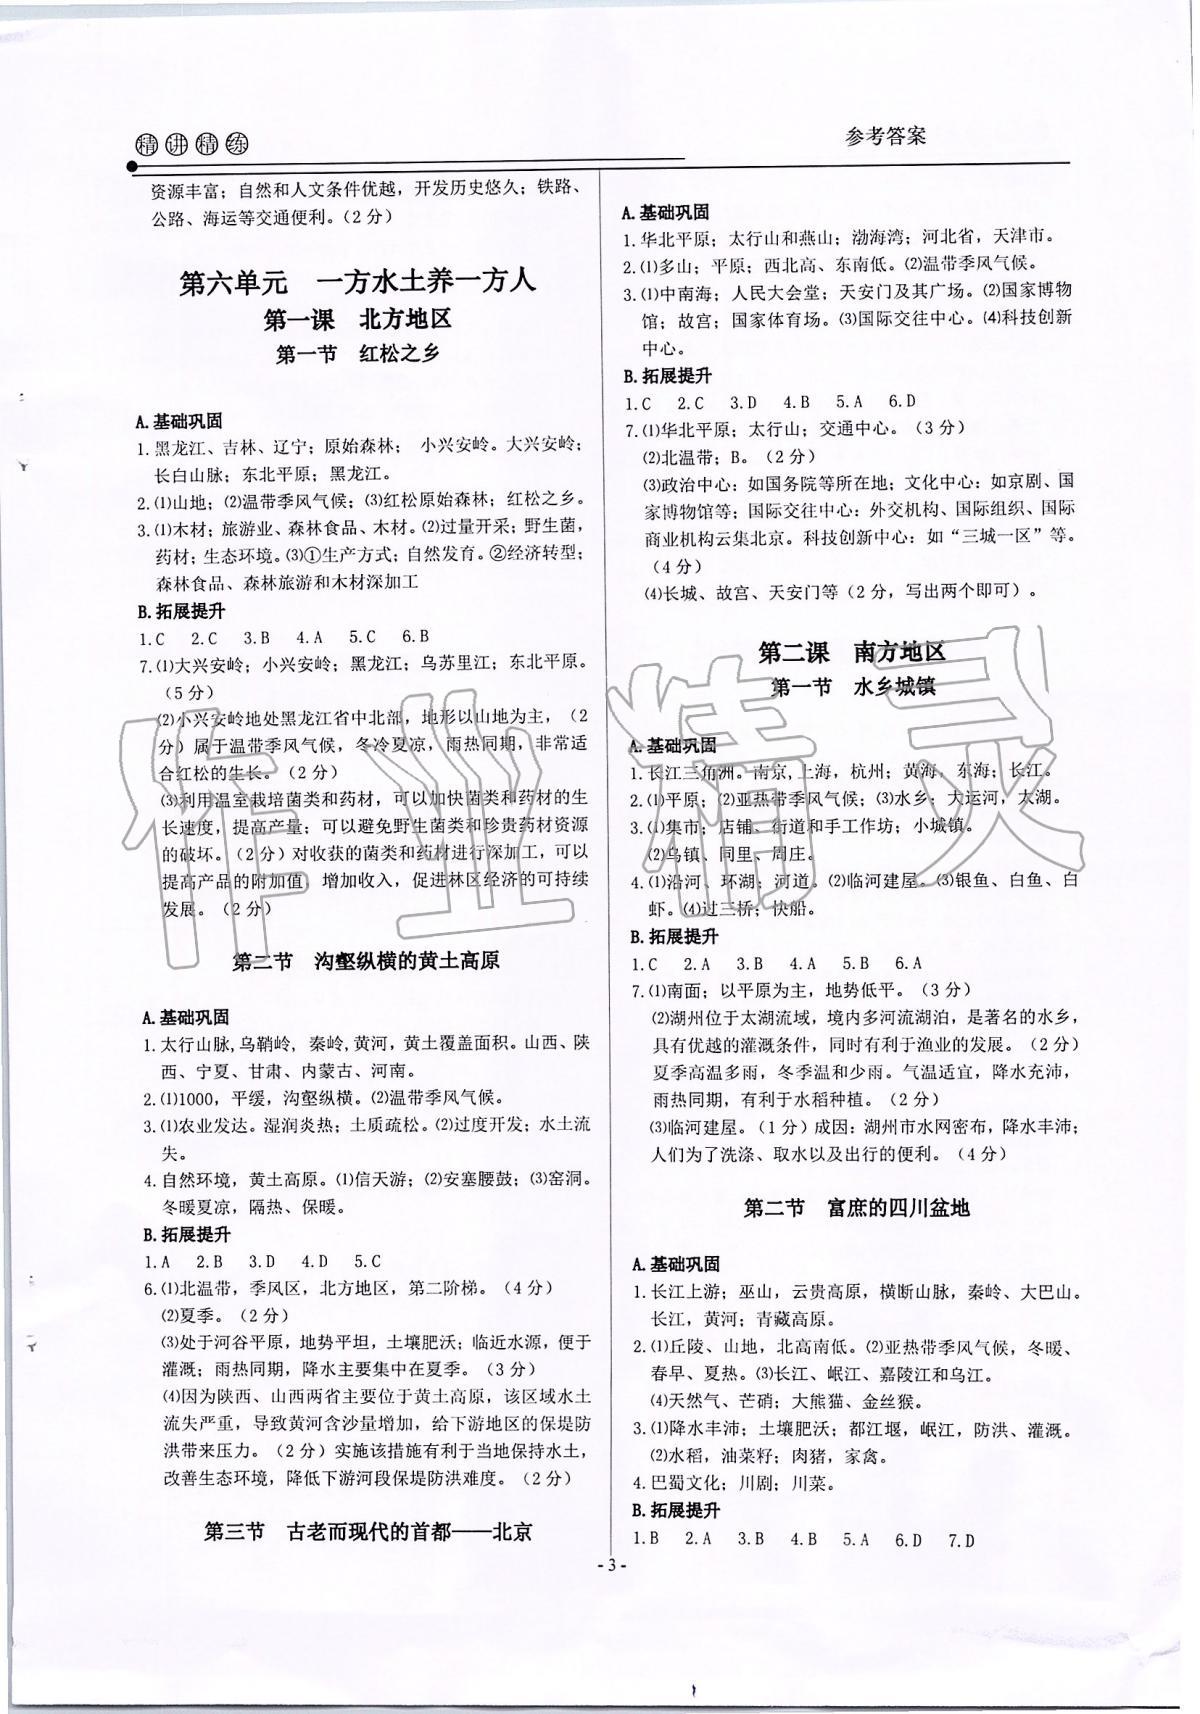 精讲精练
参考答案
资源丰富；自然和人文条件优越，开发历史悠久；铁路、
公路、海运等交通便利。（2 分）
第六单元　一方水土养一方人
第一课　北方地区
第一节　红松之乡
A.基础巩固
1.黑龙江、吉林、辽宁；原始森林；　小兴安岭。大兴安岭；
长白山脉；东北平原；黑龙江。
2.⑴山地；⑵温带季风气候；⑶红松原始森林；红松之乡。
3.⑴木材；旅游业、森林食品、木材。⑵过量开采；野生菌，
药材；生态环境。⑶①生产方式；自然发育。②经济转型；
森林食品、森林旅游和木材深加工
B.拓展提升
1.C　2.C　3.B　4.A　5.C　6.B
7.⑴大兴安岭；小兴安岭；黑龙江；乌苏里江；东北平原。
（5 分）
⑵小兴安岭地处黑龙江省中北部，地形以山地为主，（2
分）属于温带季风气候，冬冷夏凉，雨热同期，非常适
合红松的生长。（2 分）
⑶利用温室栽培菌类和药材，可以加快菌类和药材的生
长速度，提高产量；可以避免野生菌类和珍贵药材资源
的破坏。（2 分）对收获的菌类和药材进行深加工，可以
提高产品的附加值　增加收入，促进林区经济的可持续
发展。（2 分）
第二节　沟壑纵横的黄土高原
A.基础巩固
1.太行山脉,乌鞘岭，秦岭,黄河，黄土覆盖面积。山西、陕
西、宁夏、甘肃、内蒙古、河南。
2.⑴1000，平缓，沟壑纵横。⑵温带季风气候。
3.⑴农业发达。湿润炎热；土质疏松。⑵过度开发；水土流
失。
4.自然环境，黄土高原。⑴信天游；⑵安塞腰鼓；⑶窑洞。
冬暖夏凉，隔热、保暖。
B.拓展提升
1.A　2.B　3.D　4.D　5.C
6.⑴北温带，季风区，北方地区，第二阶梯。（4 分）
⑵夏季。（2 分）
⑶处于河谷平原，地势平坦，土壤肥沃；临近水源，便于
灌溉；雨热同期，降水主要集中在夏季。（3 分）
⑷因为陕西、山西两省主要位于黄土高原，该区域水土
流失严重，导致黄河含沙量增加，给下游地区的保堤防
洪带来压力。（2 分）实施该措施有利于当地保持水土，
改善生态环境，降低下游河段保堤防洪难度。（2 分）
第三节　古老而现代的首都——北京
A.基础巩固
1.华北平原；太行山和燕山；渤海湾；河北省，天津市。
2.⑴多山；平原；西北高、东南低。⑵温带季风气候。
3.⑴中南海；人民大会堂；天安门及其广场。⑵国家博物
馆；故宫；国家体育场。⑶国际交往中心。⑷科技创新
中心。
B.拓展提升
1.C　2.C　3.D　4.B　5.A　6.D
7.⑴华北平原；太行山；交通中心。（3 分）
⑵北温带；B。（2 分）
⑶政治中心：如国务院等所在地；文化中心：如京剧、国
家博物馆等；国际交往中心：外交机构、国际组织、国际
商业机构云集北京。科技创新中心：如“三城一区”等。
（4 分）
⑷长城、故宫、天安门等（2 分，写出两个即可）。
第二课　南方地区
第一节　水乡城镇
A.基础巩固
1.长江三角洲。南京,上海，杭州；黄海，东海；长江。
2.⑴平原；⑵亚热带季风气候；⑶水乡；大运河，太湖。
3.⑴集市；店铺、街道和手工作坊；小城镇。
⑵乌镇、同里、周庄。
4.⑴沿河、环湖；河道。⑵临河建屋。⑶银鱼、白鱼、白
虾。⑷过三桥；快船。
B.拓展提升
1.C　2.A　3.B　4.A　5.B　6.A
7.⑴南面；以平原为主，地势低平。（3 分）
⑵湖州位于太湖流域，境内多河流湖泊，是著名的水乡，
具有优越的灌溉条件，同时有利于渔业的发展。（2 分）
夏季高温多雨，冬季温和少雨。气温适宜，降水充沛，
雨热同期，有利于水稻种植。（2 分）
⑶临河建屋。（1 分）成因：湖州市水网密布，降水丰沛；
人们为了洗涤、取水以及出行的便利。（4 分）
第二节　富庶的四川盆地
A.基础巩固
1.长江上游；巫山，云贵高原，横断山脉，秦岭、大巴山。
长江，黄河；青藏高原。
2.⑴丘陵、山地，北高南低。⑵亚热带季风气候，冬暖、
春早、夏热。⑶长江、岷江、嘉陵江和乌江。
⑷天然气、芒硝；大熊猫、金丝猴。
3.⑴降水丰沛；土壤肥沃；都江堰，岷江，防洪、灌溉。
⑵水稻，油菜籽；肉猪，家禽。
4.巴蜀文化；川剧；川菜。
B.拓展提升
1.B　2.A　3.B　4.D　5.A　6.D　7.D
- 3 -
作业精灵